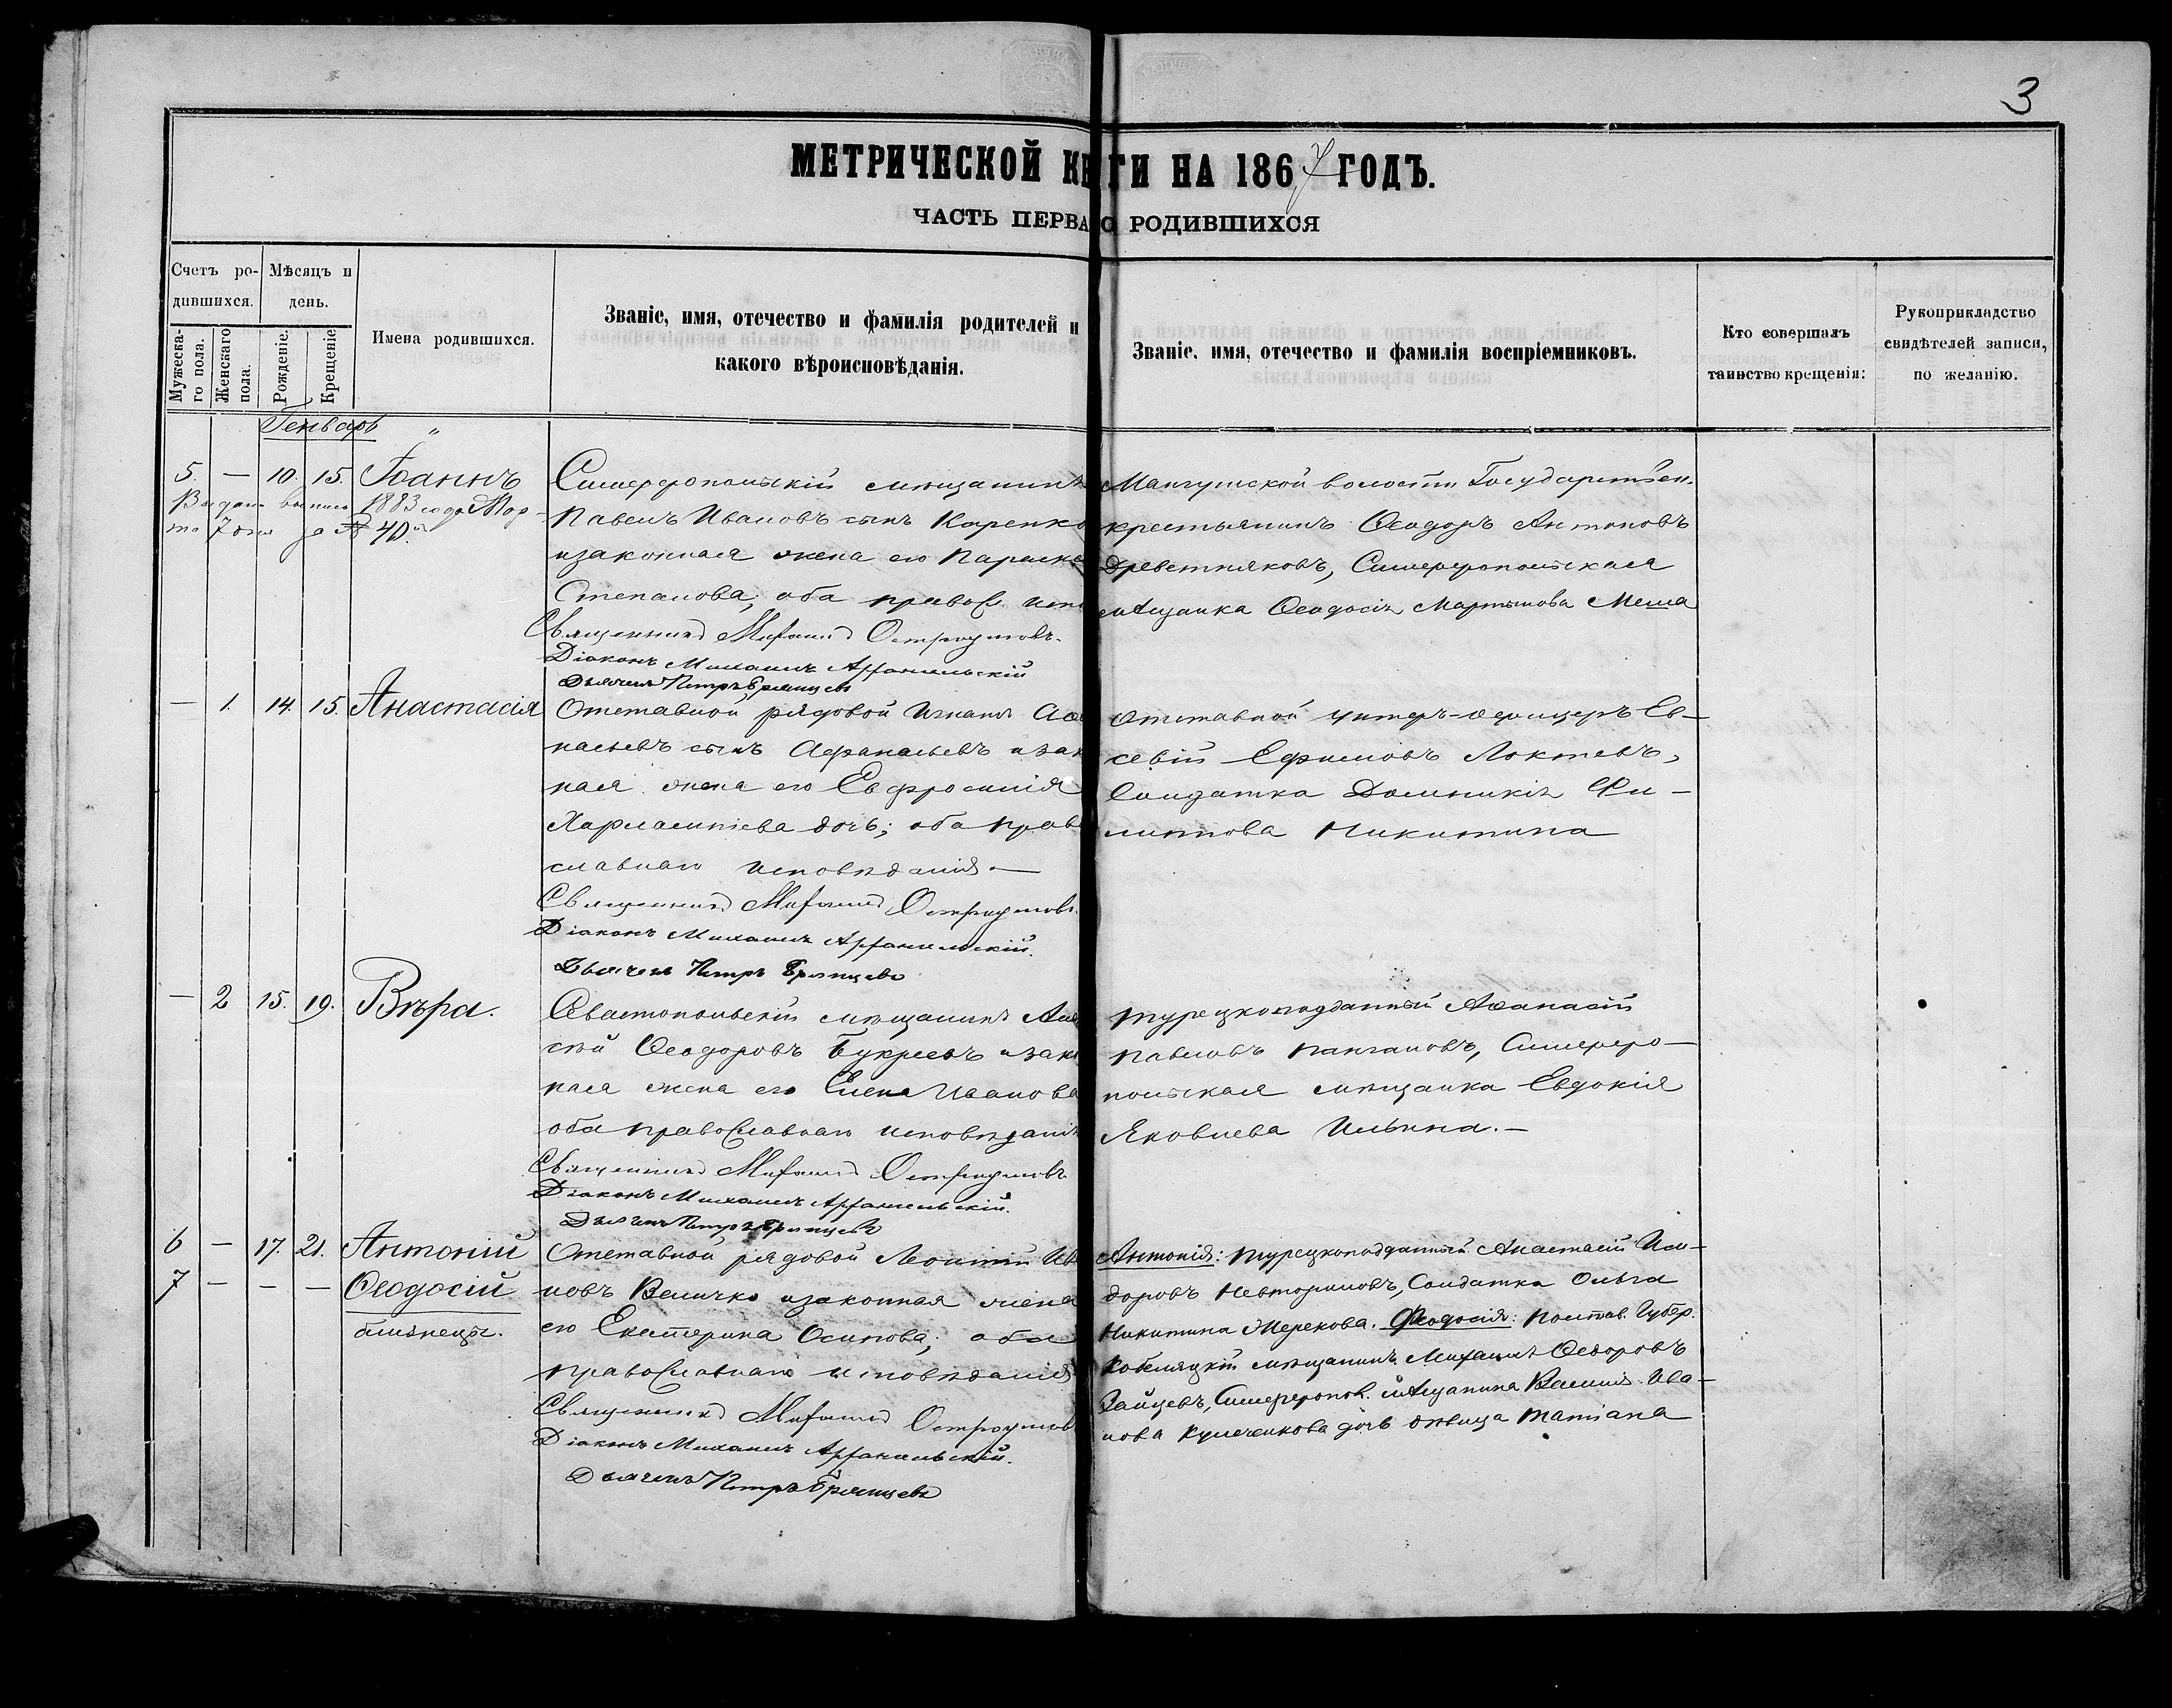 3
МЕТРИЧЕСКОЙ КН ГИ НА 1867 ГОДЪ.
ЧАСТЬ ПЕРВА О РОДИВШИХСЯ
Счетъ ро-
дившихся.
Мужеска-
го пола.
Женскаго
пола.
Мѣсяцъ и
день.
Рожденіе.
Крещеніе
Имена родившихся.
Званіе, имя, отечество и фамилія родителей и
какого вѣроисповѣданія.
Званіе, имя, отечество и фамилія воспріемниковъ.
Кто совершалъ
таинство крещенія:
Рукоприкладство
свидѣтелей записи,
по желанію.
Генварь "
5. — 10. 15. Іоаннъ
Выдана выпись 1883 года Мар-
та 7 дня за № 40.
Симферопольскій мѣщанинъ
Павелъ Ивановъ сынъ Каренко
изаконная жена его Параске
Степанова; оба правос. исп
Священникъ Михаилъ Остроумовъ.
Діаконъ Михаилъ Архангельскій
Дьячекъ Петръ Брянцевъ
Мангушской волости Государствен.
крестьянинъ Ѳеодоръ Антоновъ
Древетняковъ, Симферопольская
мѣщанка Ѳеодосія Мартынова Меша
— 1. 14. 15. Анастасія
Отставной рядовой Игнатъ Аѳа
насьевъ сынъ Афанасьевъ изак
ная жена его Евфросинія
Харлампіева дочь; оба прав
славнаго исповѣданія —
Священникъ Михаилъ Остроумовъ.
Діаконъ Михаилъ Архангельскій.
Дьячекъ Петръ Брянцевъ
Отставной унтеръ-офицеръ Ев-
севій Ефимовъ Локтевъ,
Солдатка Домникія Фи-
липова Никитина
— 2 15. 19. Вѣра.
Севастопольскій мѣщанинъ Але
сѣй Ѳеодоровъ Букреевъ изак
ная жена его Елена Иванова
оба православнаго исповѣданія
Священникъ Михаилъ Остроумовъ
Діаконъ Михаилъ Архангельскій.
Дьячекъ Петръ Брянцевъ
турецкоподданный Аѳанасій
Павловъ Пангаловъ, Симферо-
польская мѣщанка Евдокія
Яковлева Ильина. —
6 — 17. 21. Антоній
7 — — — Ѳеодосій
близнецы.
Отставной рядовой Леонтій Ив
новъ Величко изаконная жена
его Екатерина Осипова; оба
православнаго исповѣданія
Священникъ Михаилъ Остроумов
Діаконъ Михаилъ Архангельскій.
Дьячекъ Петръ Брянцевъ
Антонія: турецкоподданный Анастасій Иси-
доровъ, Солдатка Ольга
Никитина. Ѳеодосія: Полтав. Губер.
Кобеляцкій мѣщанинъ Михаилъ Ѳедоровъ
Зайцевъ, Симфероп. мѣщанина Василія Ива-
нова дочь дѣвица Татіана